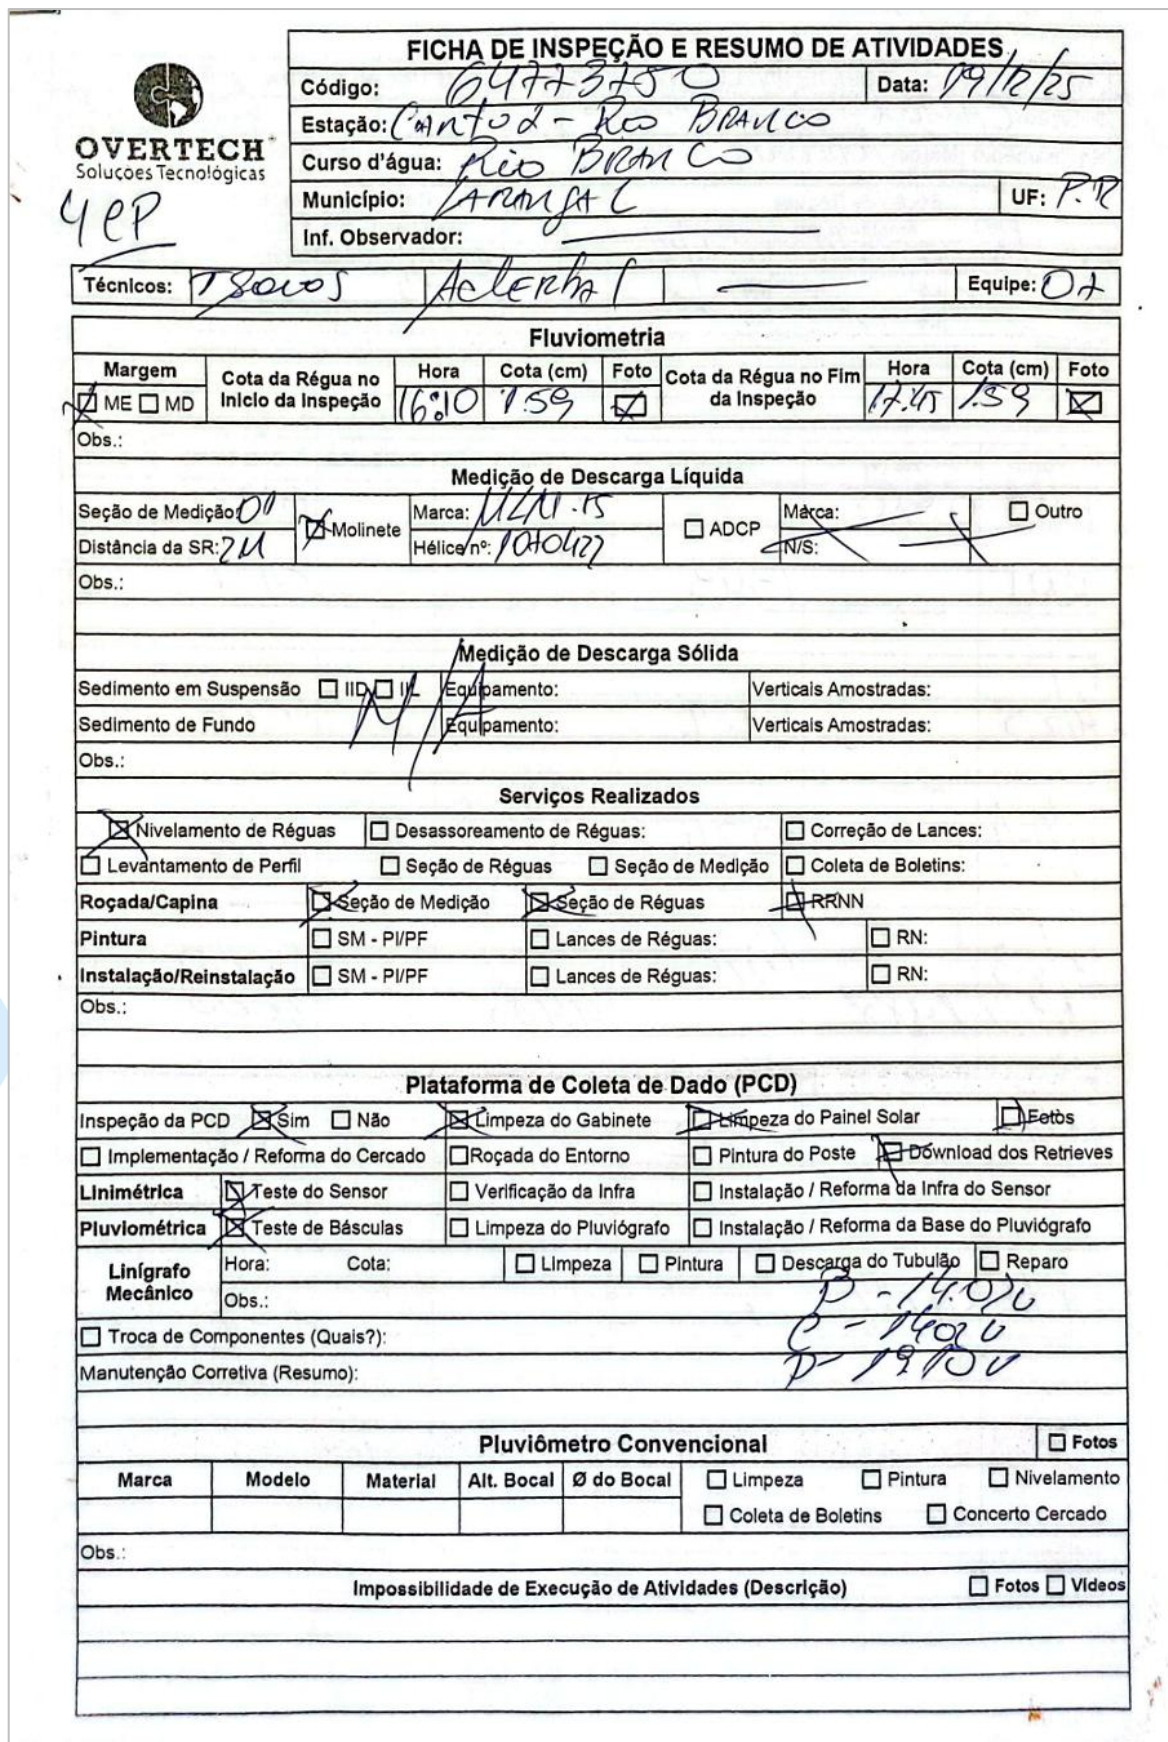 FICHA DE INSPEÇÃO E RESUMO DE ATIVIDADES
OVERTECH
Soluções Tecnológicas
Código: 64773750 Data: 19/12/25
Estação: - Rio Branco
Curso d'água: Rio Branco
Município: Laranjal UF: P.R
Inf. Observador:
Técnicos: Equipe: 07
Fluviometria
Margem Cota da Régua no Inicio da Inspeção Hora Cota (cm) Foto Cota da Régua no Fim da Inspeção Hora Cota (cm) Foto
ME MD 16:10 1.59 17:45 1.59
Obs.:
Medição de Descarga Líquida
Seção de Medição: 01 Molinete Marca: MLN-15 ADCP Marca: Outro
Distância da SR: 2M Hélice nº: N/S:
Obs.:
Medição de Descarga Sólida
Sedimento em Suspensão IID IIL Equipamento: Verticais Amostradas:
N/A
Sedimento de Fundo Equipamento: Verticais Amostradas:
Obs.:
Serviços Realizados
Nivelamento de Réguas Desassoreamento de Réguas: Correção de Lances:
Levantamento de Perfil Seção de Réguas Seção de Medição Coleta de Boletins:
Roçada/Capina Seção de Medição Seção de Réguas RRNN
Pintura SM - PI/PF Lances de Réguas: RN:
Instalação/Reinstalação SM - PI/PF Lances de Réguas: RN:
Obs.:
Plataforma de Coleta de Dado (PCD)
Inspeção da PCD Sim Não Limpeza do Gabinete Limpeza do Painel Solar Fotos
Implementação / Reforma do Cercado Roçada do Entorno Pintura do Poste Download dos Retrieves
Linimétrica Teste do Sensor Verificação da Infra Instalação / Reforma da Infra do Sensor
Pluviométrica Teste de Básculas Limpeza do Pluviógrafo Instalação / Reforma da Base do Pluviógrafo
Linígrafo Mecânico Hora: Cota: Limpeza Pintura Descarga do Tubulão Reparo
Obs.: B - 14.02v
Troca de Componentes (Quais?): C - 1402v
Manutenção Corretiva (Resumo): P - 1910v
Pluviômetro Convencional Fotos
Marca Modelo Material Alt. Bocal Ø do Bocal Limpeza Pintura Nivelamento
Coleta de Boletins Concerto Cercado
Obs.:
Impossibilidade de Execução de Atividades (Descrição) Fotos Vídeos